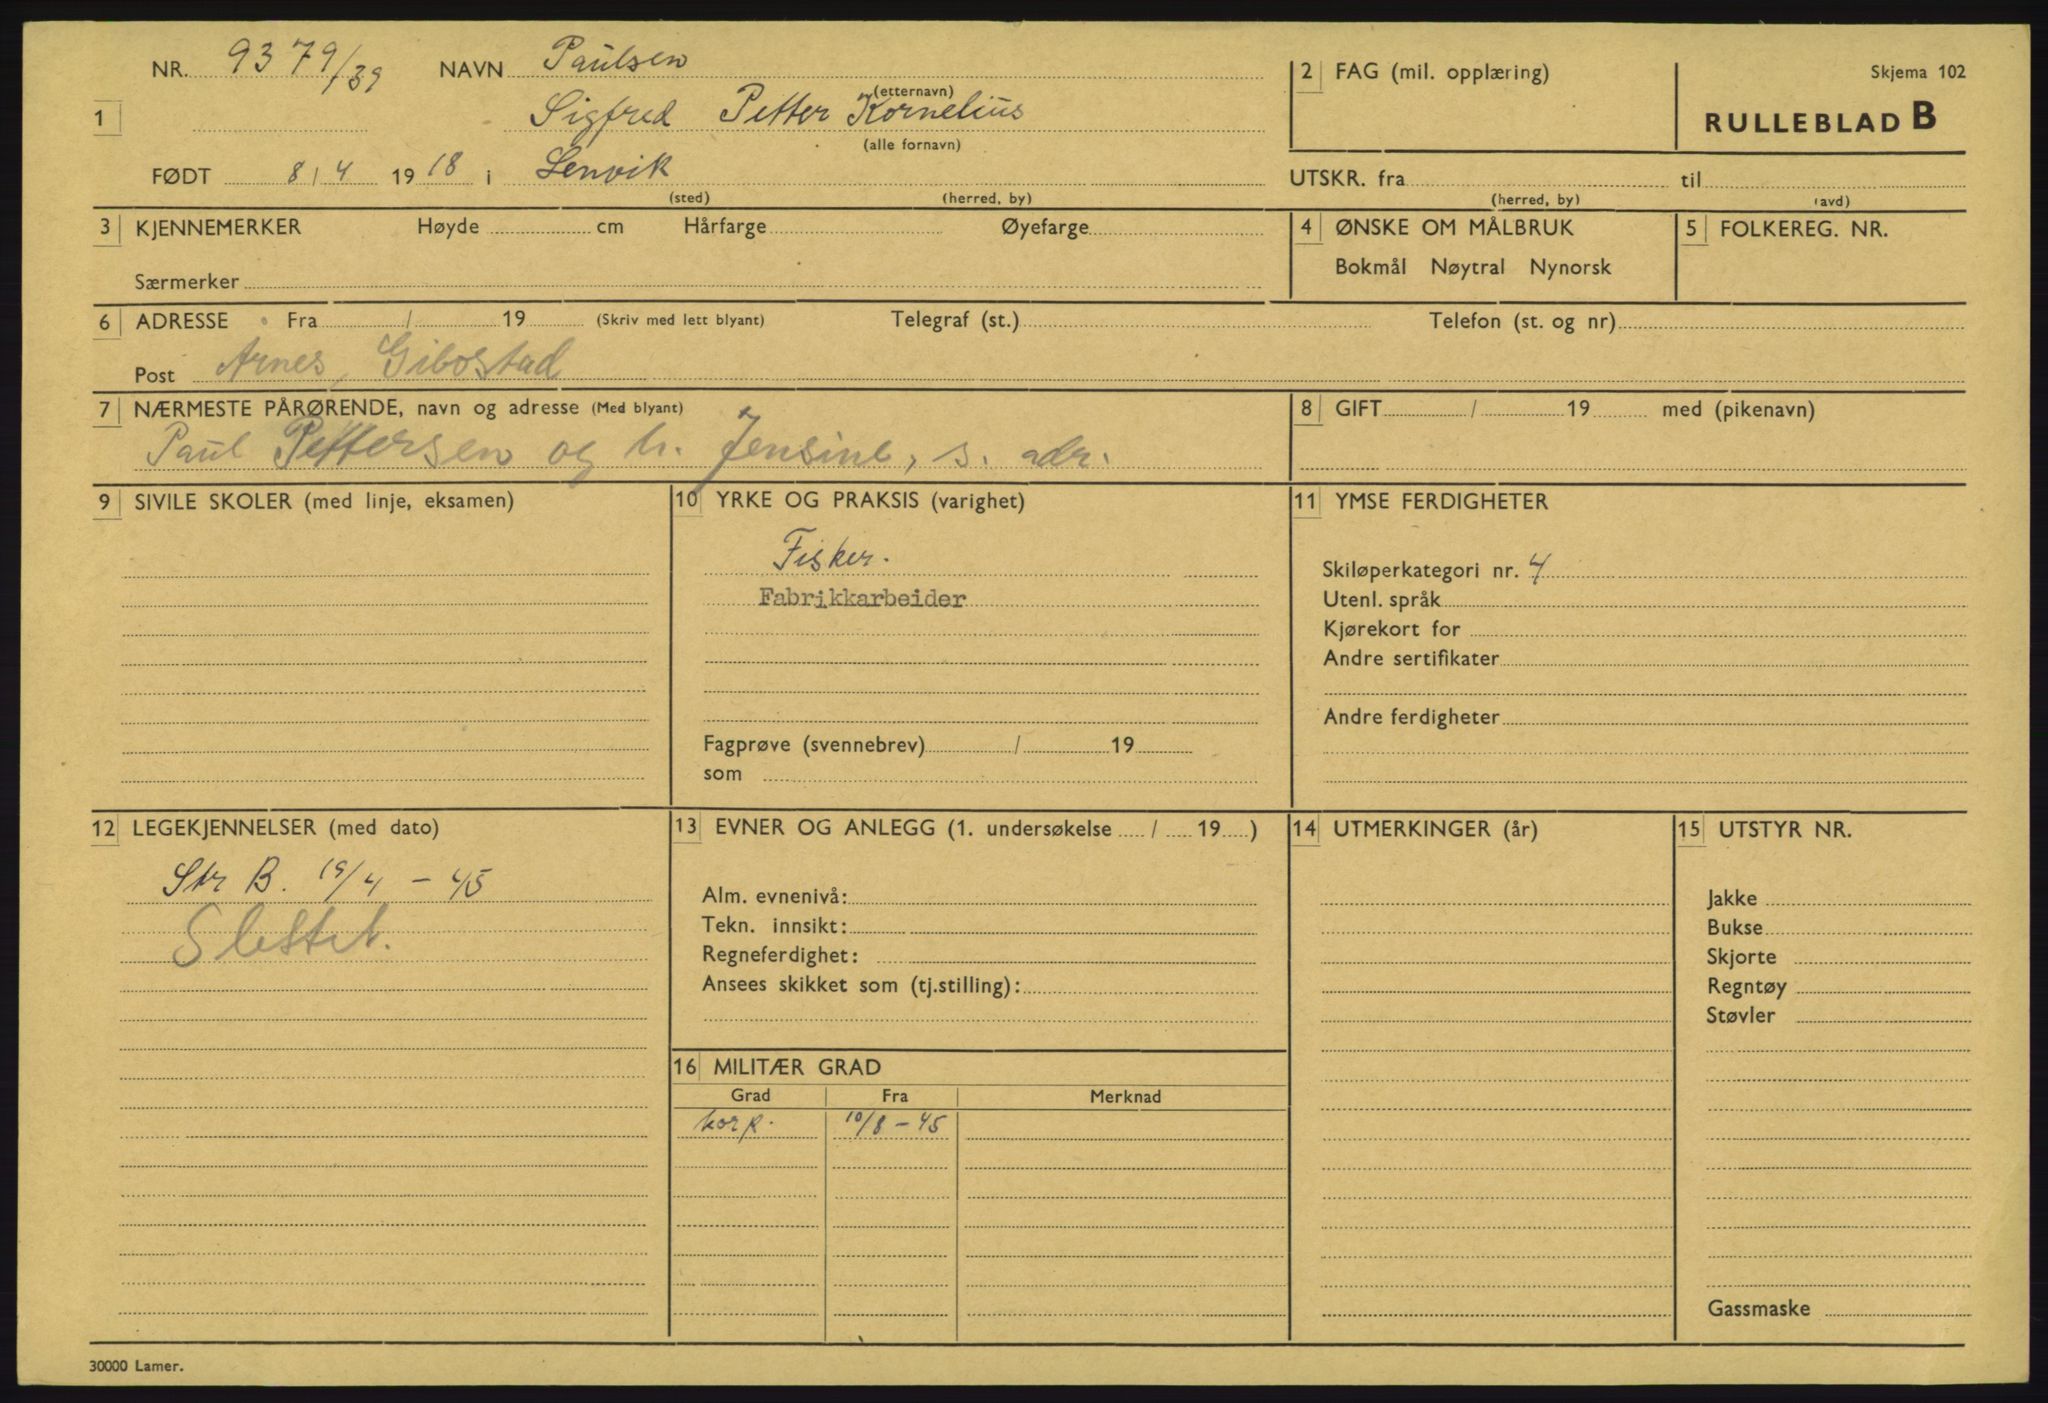 NR. 9379/39 NAVN Paulsen
(etternavn)
1 Sigfred Petter Kornelius
(alle fornavn)
FØDT 8/4 1918 i Lenvik
(sted) (herred, by)
2 FAG (mil. opplæring)
Skjema 102
RULLEBLAD B
UTSKR. fra til
(herred, by) (avd)
3 KJENNEMERKER Høyde cm Hårfarge Øyefarge
Særmerker
4 ØNSKE OM MÅLBRUK
Bokmål Nøytral Nynorsk
5 FOLKEREG. NR.
6 ADRESSE Fra / 19 (Skriv med lett blyant) Telegraf (st.) Telefon (st. og nr)
Post Arnes, Gibostad
7 NÆRMESTE PÅRØRENDE, navn og adresse (Med blyant)
Paul Pettersen og h. Jensine, s. adr.
8 GIFT / 19 med (pikenavn)
9 SIVILE SKOLER (med linje, eksamen)
10 YRKE OG PRAKSIS (varighet)
Fisker.
Fabrikkarbeider
Fagprøve (svennebrev) / 19
som
11 YMSE FERDIGHETER
Skiløperkategori nr. 4
Utenl. språk
Kjørekort for
Andre sertifikater
Andre ferdigheter
12 LEGEKJENNELSER (med dato)
Str B. 19/4 - 45
13 EVNER OG ANLEGG (1. undersøkelse / 19 )
Alm. evnenivå:
Tekn. innsikt:
Regneferdighet:
Ansees skikket som (tj.stilling):
14 UTMERKINGER (år)
15 UTSTYR NR.
Jakke
Bukse
Skjorte
Regntøy
Støvler
Gassmaske
16 MILITÆR GRAD
Grad Fra Merknad
korp. 10/8 - 45
30000 Lamer.